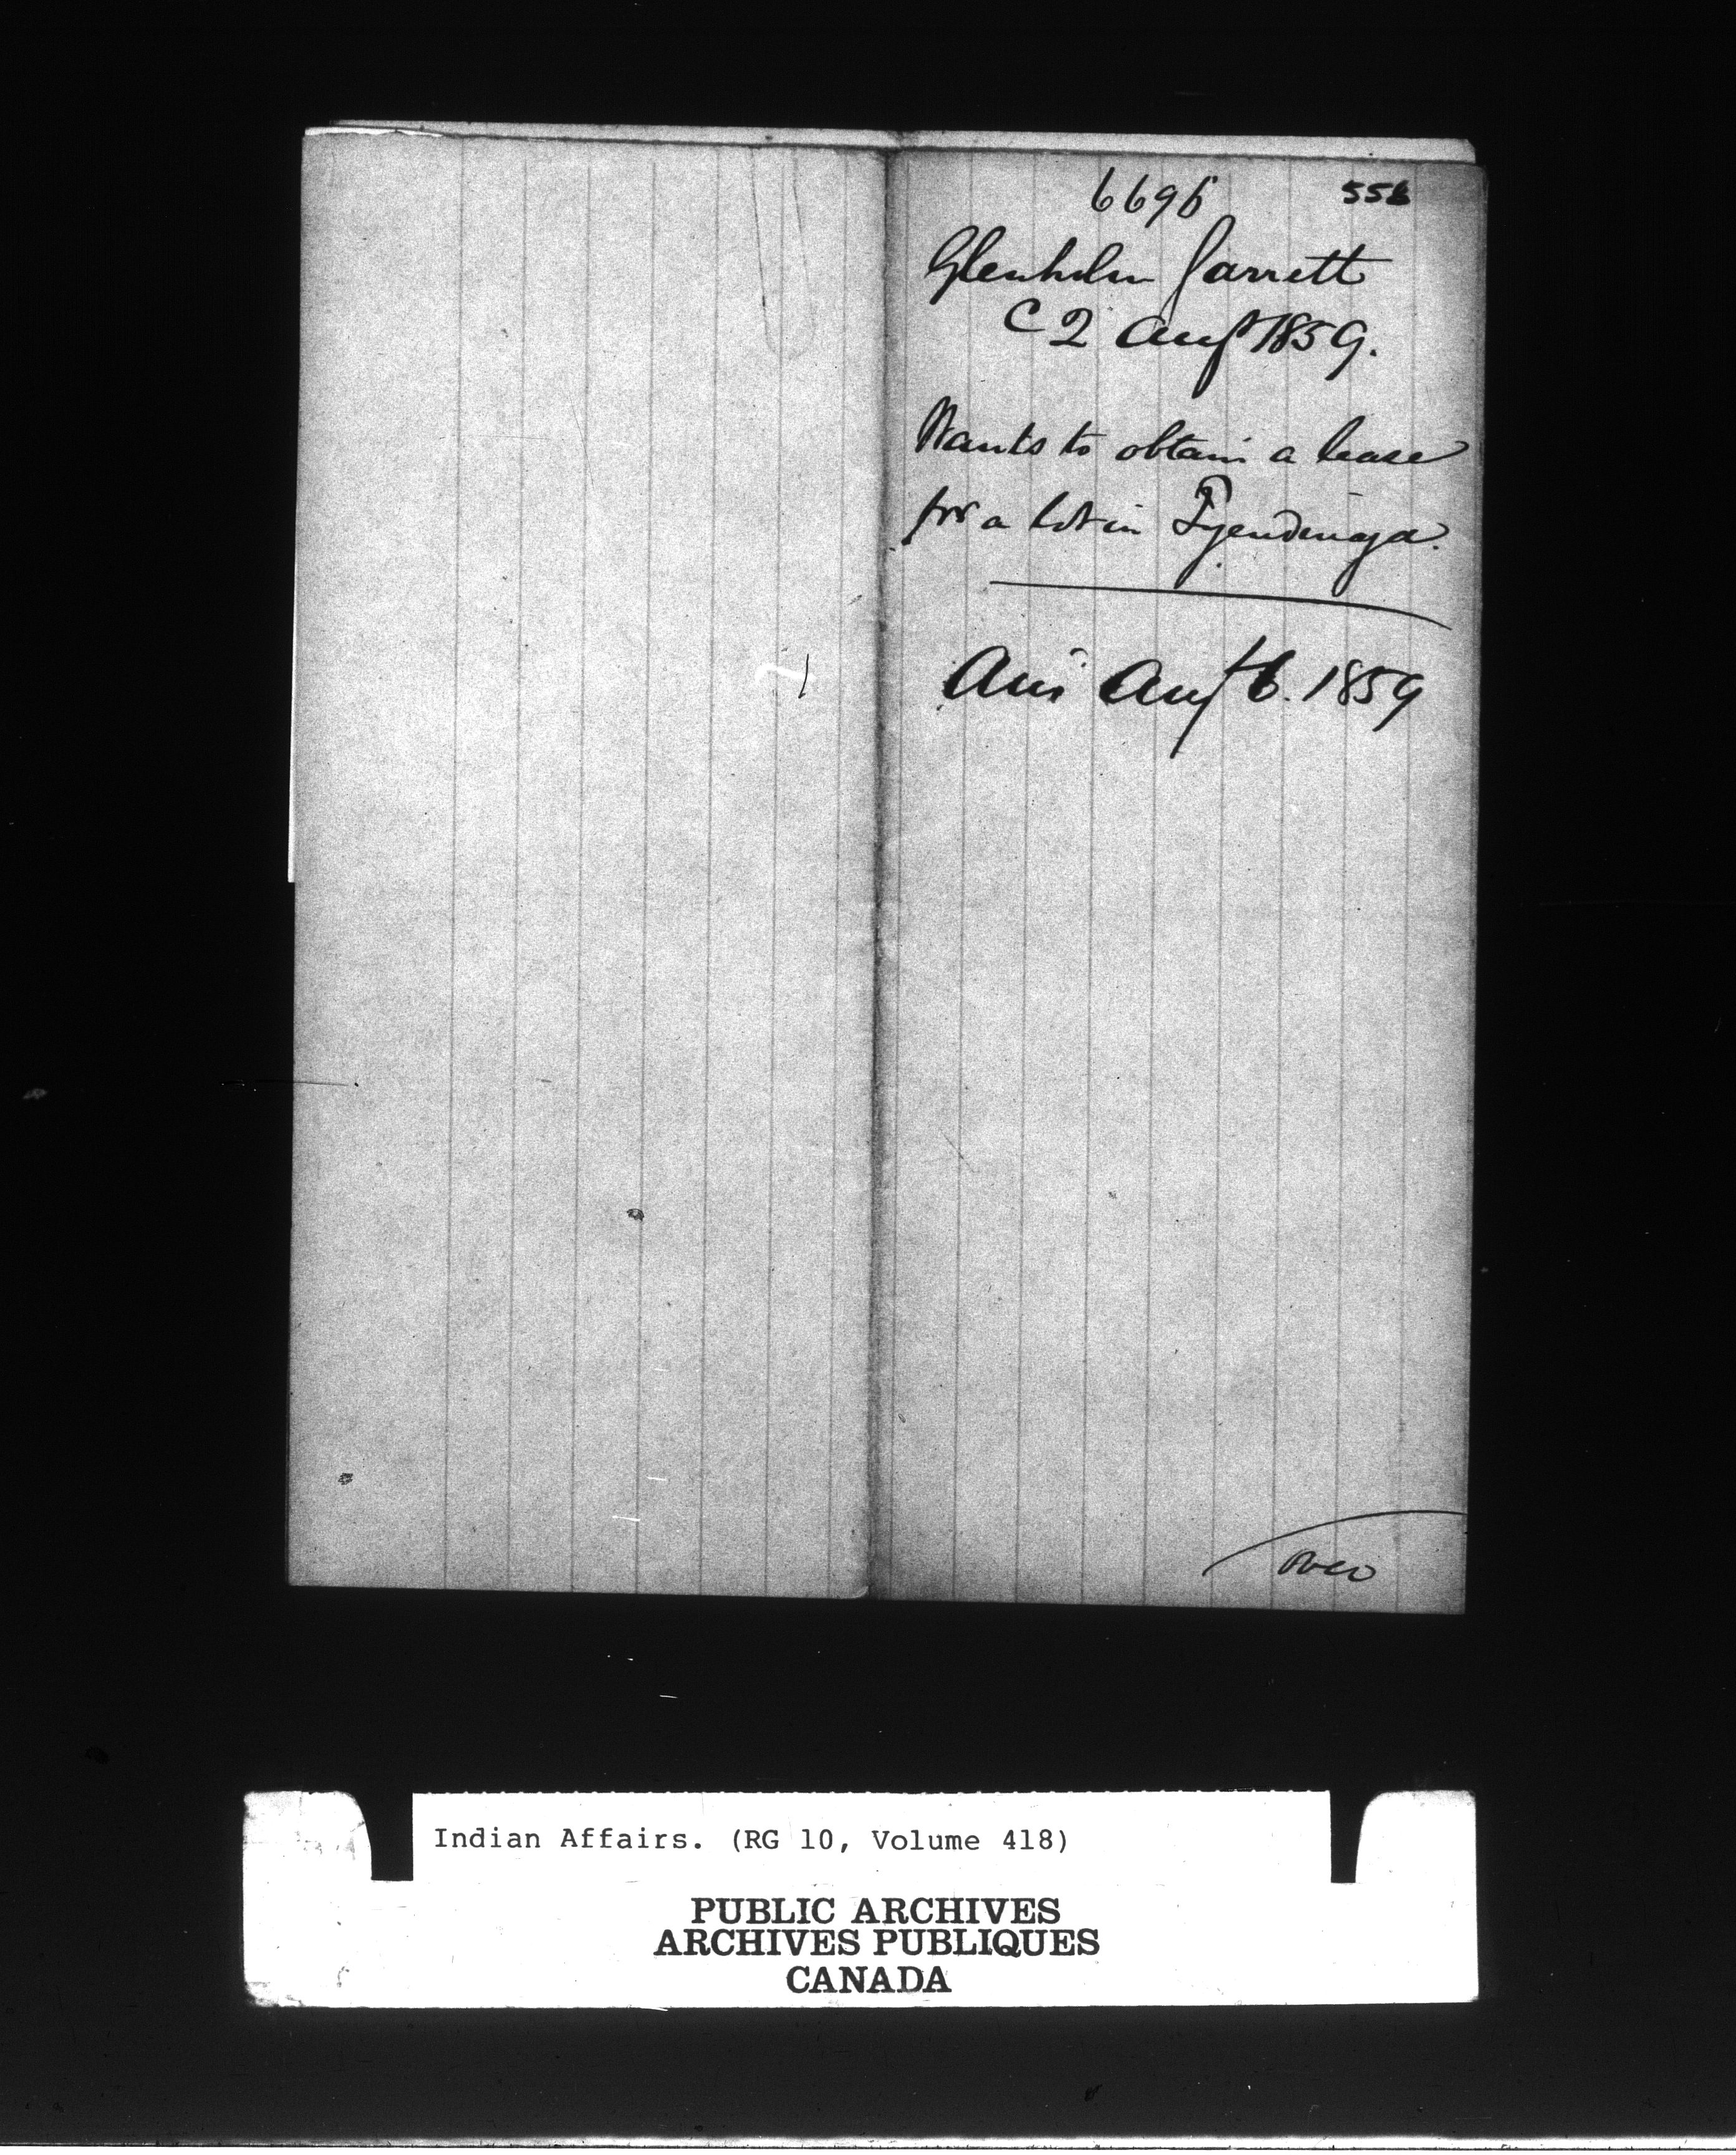 6696 556
Glenholm Garrett
C 2 Augt 1859.
Wants to obtain a lease
for a lot in Tyendinaga.
Ans Augt 6. 1859
Over
Indian Affairs. (RG 10, Volume 418)
PUBLIC ARCHIVES
ARCHIVES PUBLIQUES
CANADA